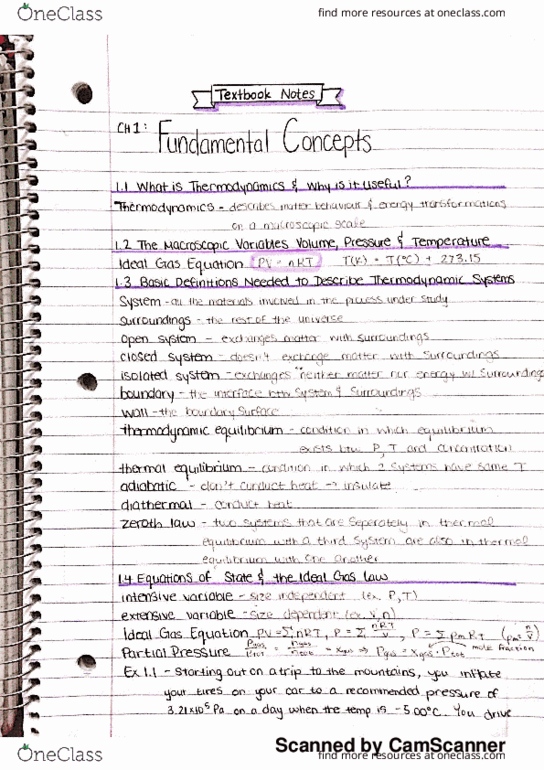 OneClass
find more resources at oneclass.com
Textbook Notes
CH 1: Fundamental Concepts
1.1 What is Thermodynamics & Why is it useful?
Thermodynamics - describes matter behaviour & energy transformations
on a macroscopic scale
1.2 The Macroscopic Variables Volume, Pressure & Temperature
Ideal Gas Equation PV = nRT T(K) = T(°C) + 273.15
1.3 Basic Definitions Needed to Describe Thermodynamic Systems
System - all the materials involved in the process under study
Surroundings - the rest of the universe
open system - exchanges matter with surroundings
closed system - doesn't exchange matter with surroundings
isolated system - exchanges neither matter nor energy w/ surroundings
boundary - the interface btw System & Surroundings
wall - the boundary surface
thermodynamic equilibrium - condition in which equilibrium
exists btw P, T and concentration
thermal equilibrium - condition in which 2 systems have same T
adiobatic - don't conduct heat → insulate
diathermal - conduct heat
zeroth law - two systems that are seperately in thermal
equilibrium with a third system are also in thermal
equilibrium with one another
1.4 Equations of State & the Ideal Gas Law
intensive variable - size independent (ex. P, T)
extensive variable - size dependent (ex. V, n)
Ideal Gas Equation PV = Σ nRT, P = Σ nRT/V, P = Σ ρm RT (ρm = n/V)
Partial Pressure = = xgas → Pgas = xgas · Ptot mole fraction
Ex 1.1 - Starting out on a trip to the mountains, you inflate
your tires on your car to a recommended pressure of
3.21×10⁵ Pa on a day when the temp is -5.00°C. You drive
Scanned by CamScanner
OneClass
find more resources at oneclass.com